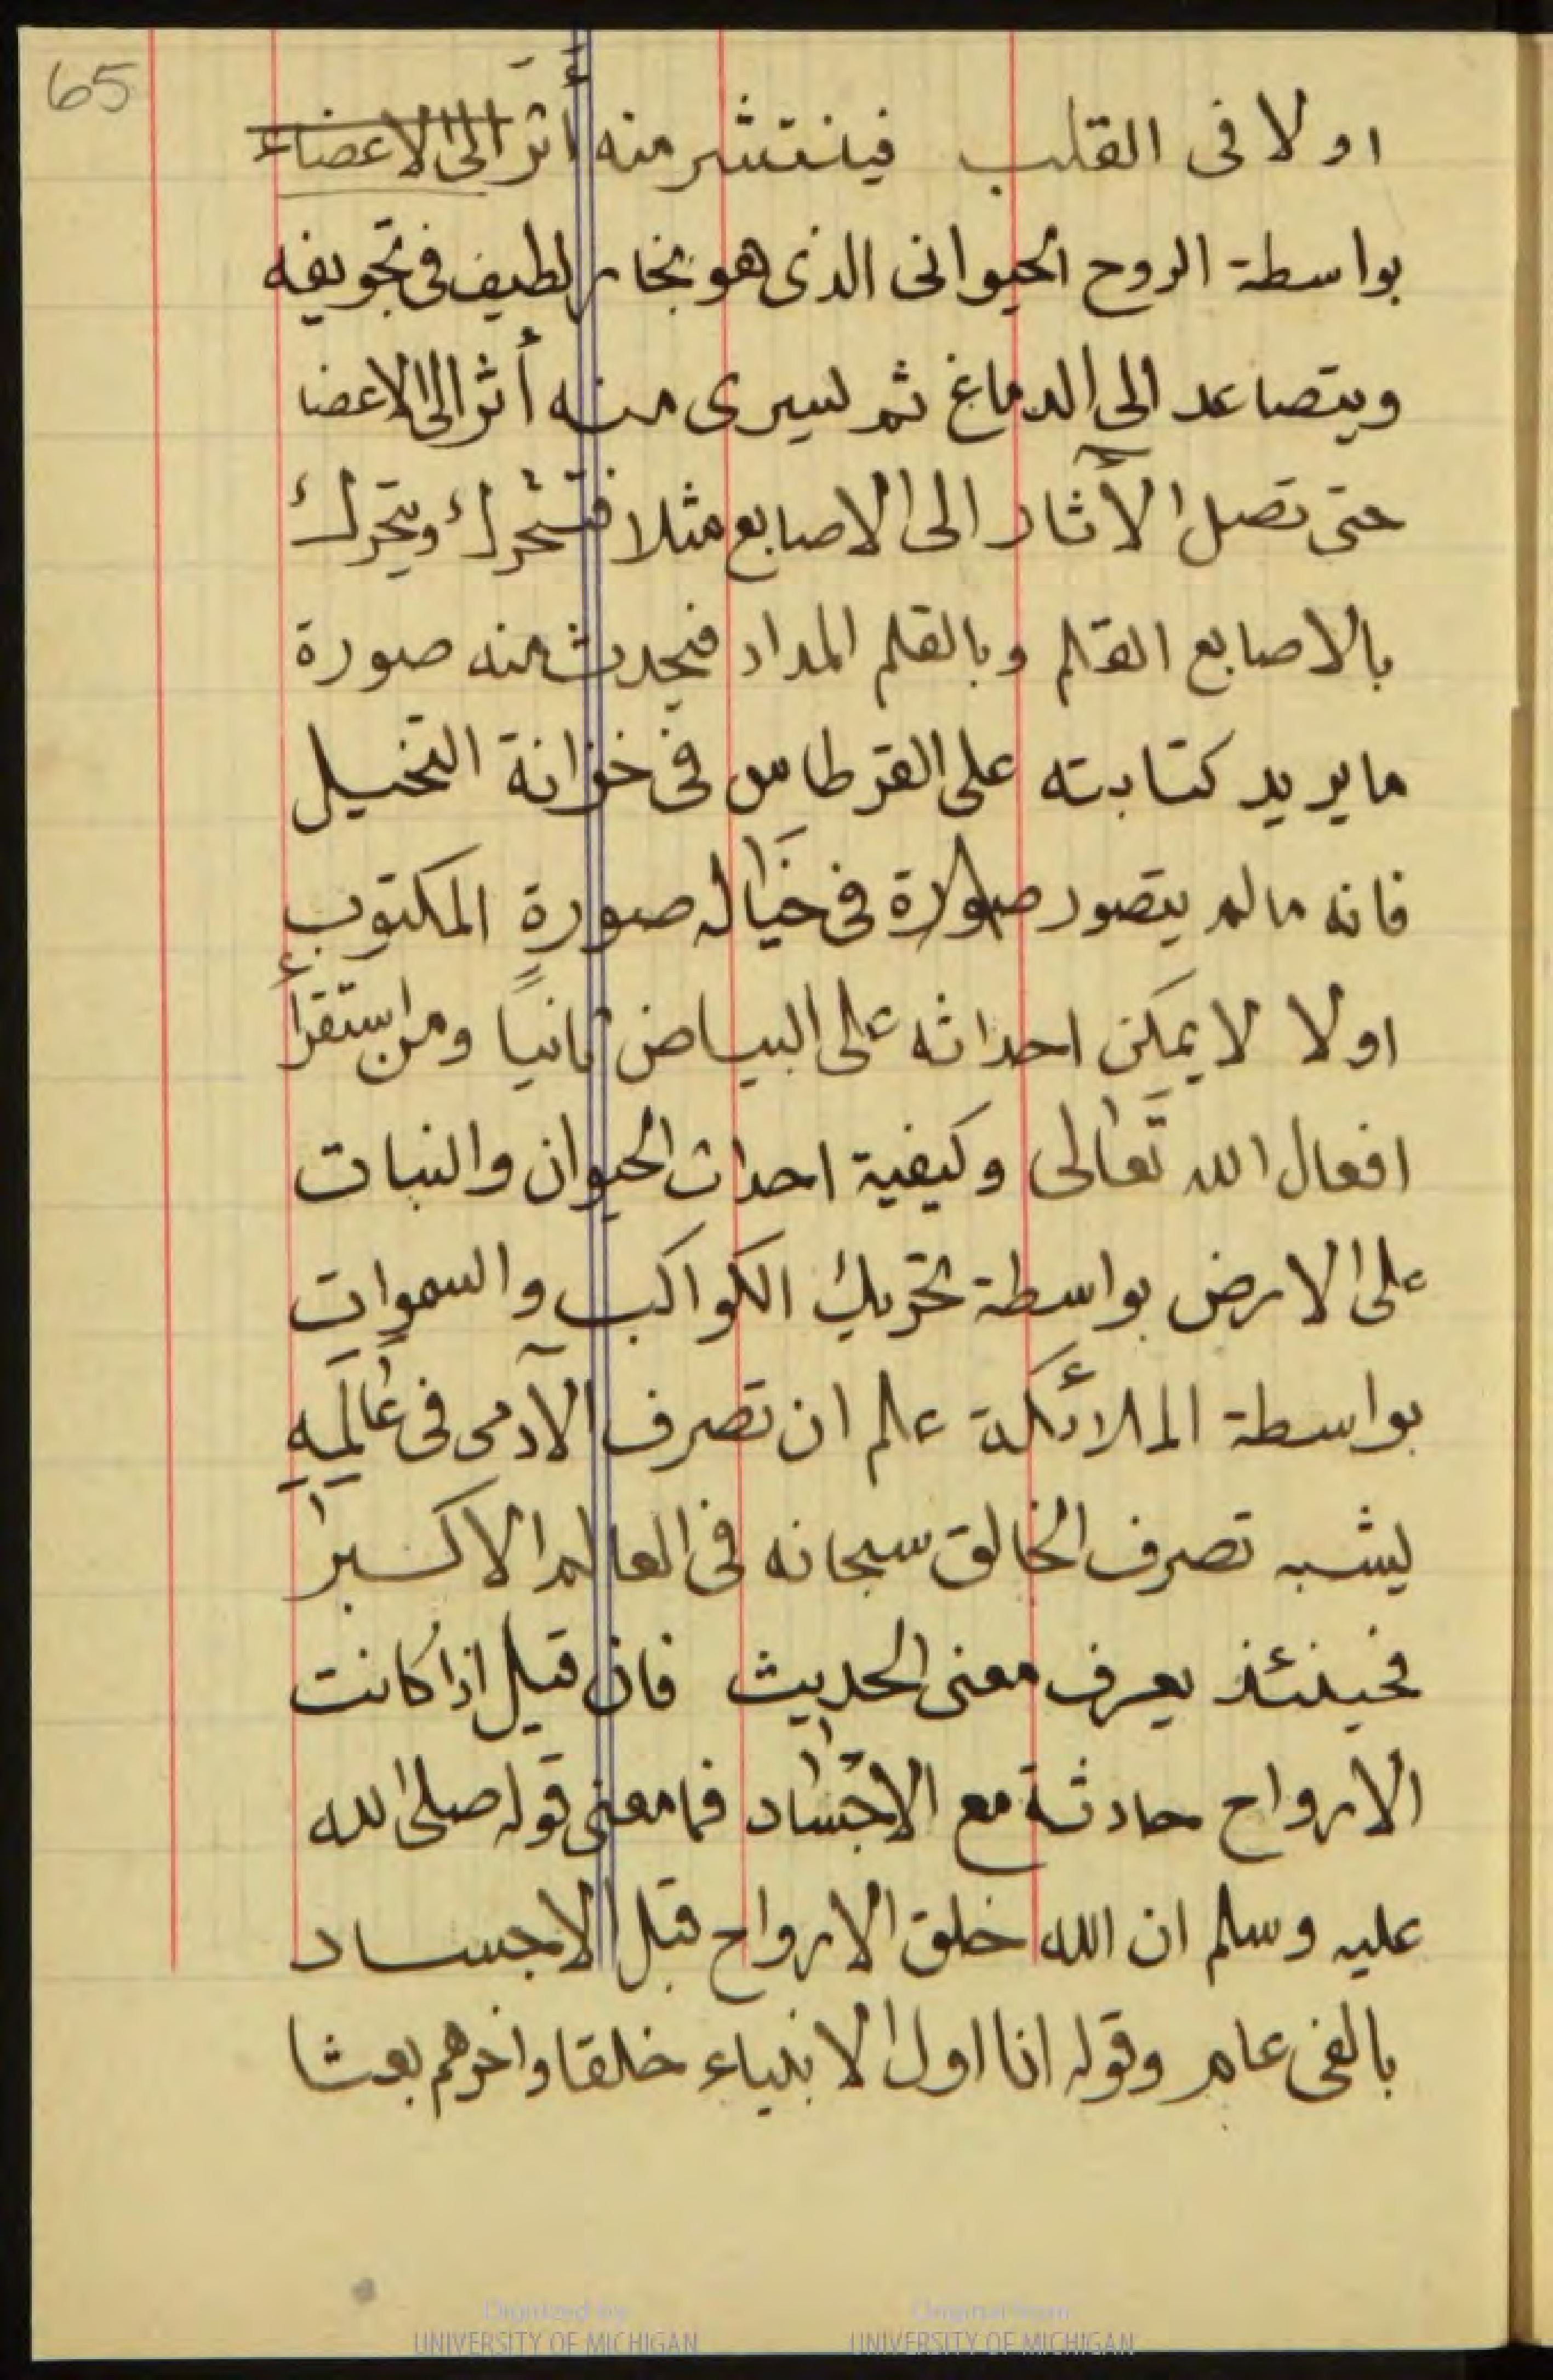 65
اولا فى القلب فينتشر منه أثر الى الاعضاء
بواسطة الروح الحيوانى الذى هو بخار لطيف فى تجويفه
ويتصاعد الى الدماغ ثم يسرى منه أثر الى الاعضا
حتى تصل الآثار الى الاصابع مثلا فتتحرك ويتحرك
بالاصابع القلم وبالقلم المداد فيحدث منه صورة
ما يريد كتابته على القرطاس فى خزانة التخيل
فانه ما لم يتصور صورة فى خيَاله صورةِ المكتوب
اولا لا يمكن احداثه على البياض ثانياً ومن استقرأ
افعال الله تَعالى وكيفية احداث الحيوان والنبات
على الارض بواسطة تحريك الكواكب والسموات
بواسطة الملائكة علم ان تصرف الآدمى فى عَالَمِهِ
يشبه تصرف الخالق سبحانه فى العالم الاكبر
فحينئذ يعرف معنى الحديث فان قيل اذا كانت
الارواح حادثة مع الاجْسَاد فما معنى قوله صلى الله
عليه وسلم ان الله خلق الارواح قبل الاجساد
بالفى عام وقوله انا اول الانبياء خلقا واخرهم بعثا
Digitized by
UNIVERSITY OF MICHIGAN
Original from
UNIVERSITY OF MICHIGAN